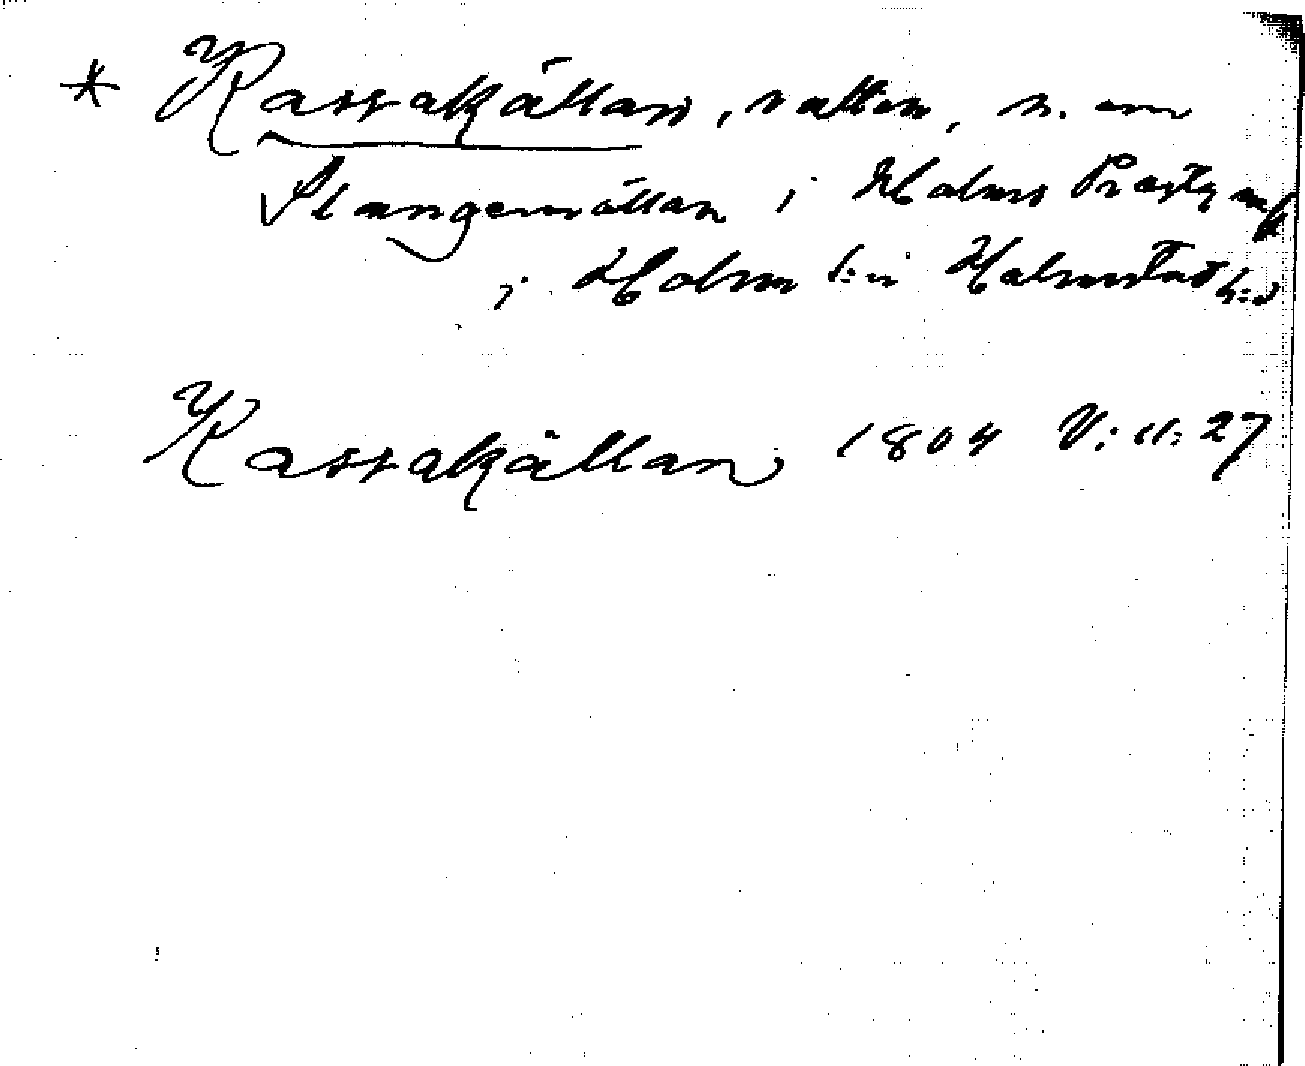 * Kassakällan, vatten, n. om
Slangemöllan i Holms Prästg
i Holm k:n Halmstad h:d
Kassakällan 1804 V: 11: 27